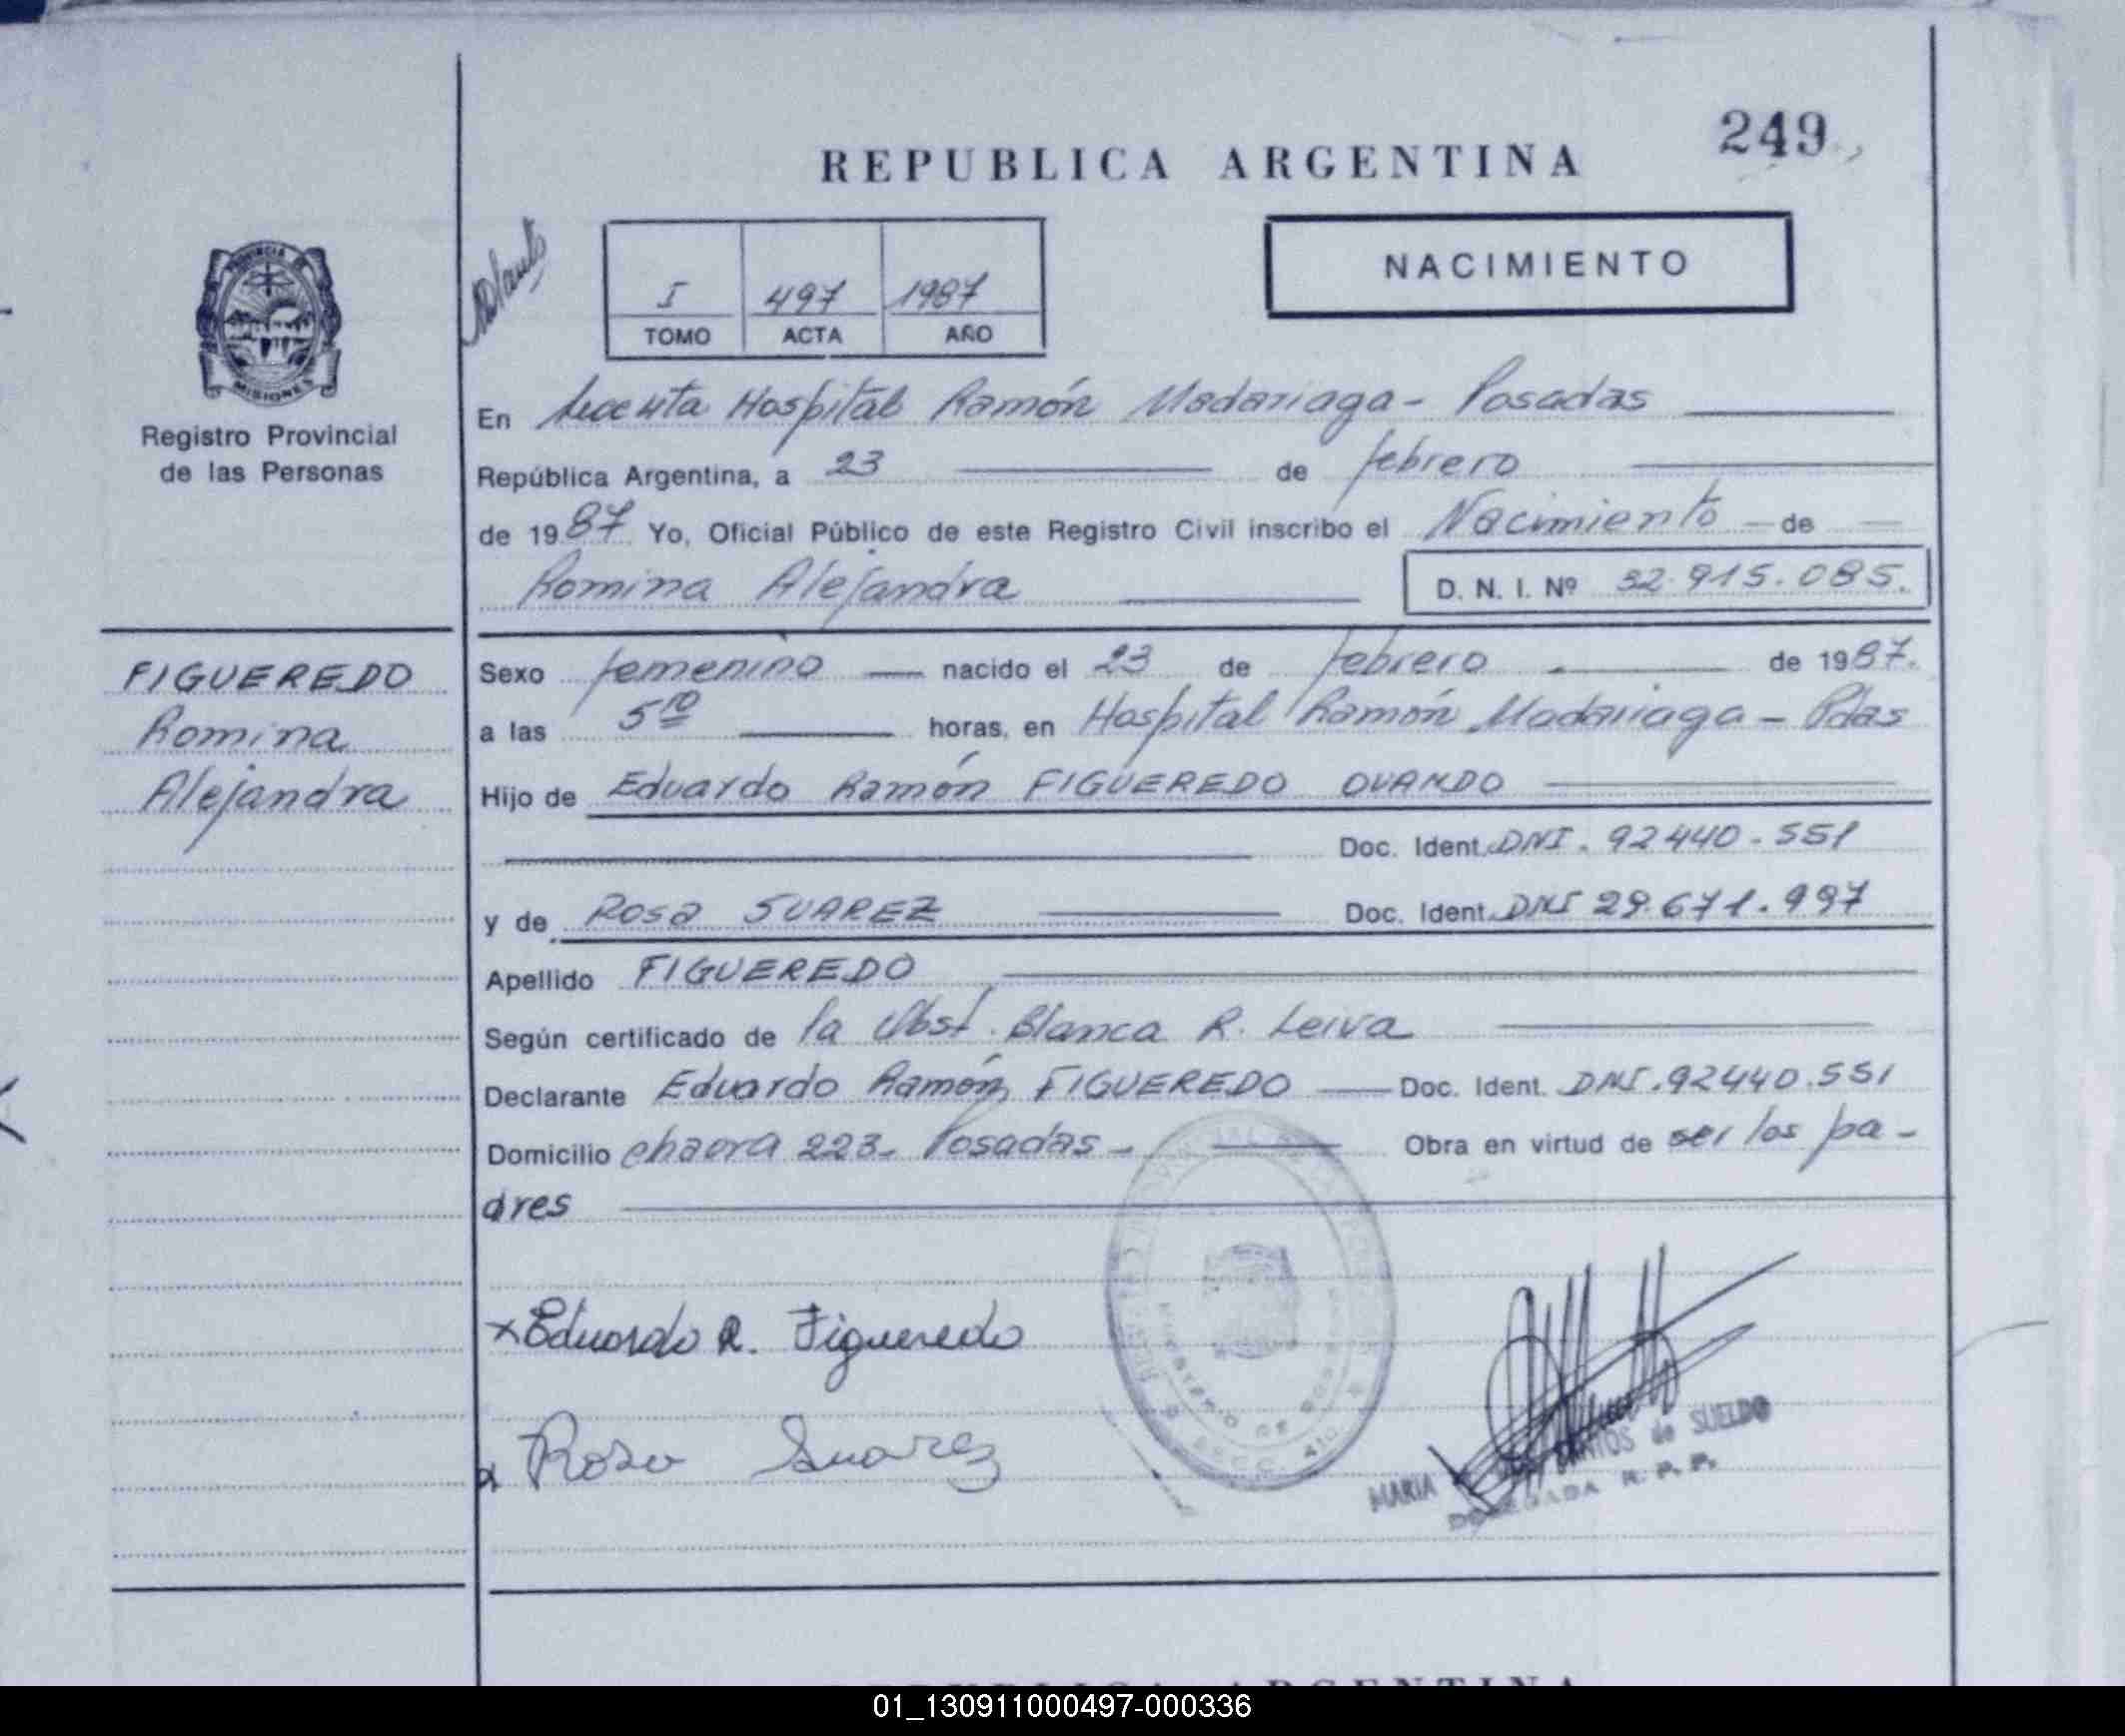 249
REPUBLICA ARGENTINA
NACIMIENTO
I 497 1987
TOMO ACTA AÑO
PROVINCIA DE
MISIONES
Registro Provincial
de las Personas
En Hospital Ramón Madariaga - Posadas
República Argentina, a 23 de febrero
de 1987 Yo, Oficial Público de este Registro Civil inscribo el Nacimiento de
Romina Alejandra D. N. I. Nº 32.915.085.
FIGUEREDO
Romina
Alejandra
Sexo femenino nacido el 23 de febrero de 1987.
a las 5 10 horas, en Hospital Ramón Madariaga - Pdas
Hijo de Eduardo Ramón FIGUEREDO OVANDO
Doc. Ident. DNI. 92440.551
y de Rosa SUAREZ Doc. Ident. DNI 29.671.997
Apellido FIGUEREDO
Según certificado de la Obst. Blanca R. Leiva
Declarante Eduardo Ramón FIGUEREDO Doc. Ident. DNI.92440.551
Domicilio chacra 223- Posadas - Obra en virtud de ser los pa-
dres
x Eduardo R. Figueredo
x Rosa Suarez
MARIA SANTOS de SUELDO
DELEGADA R. P. P.
REPUBLICA ARGENTINA
01_130911000497-000336